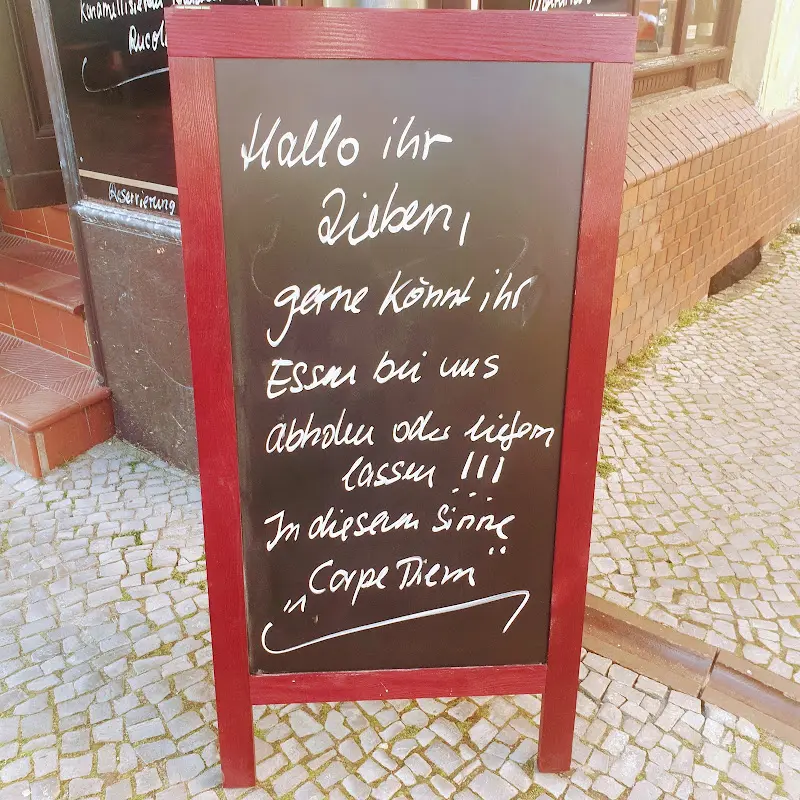 Karamellisierter
Rucola
Reservierung
Hallo ihr
Lieben,
gerne könnt ihr
Essen bei uns
abholen oder liefern
lassen !!!
In diesem Sinne
„Carpe Diem“